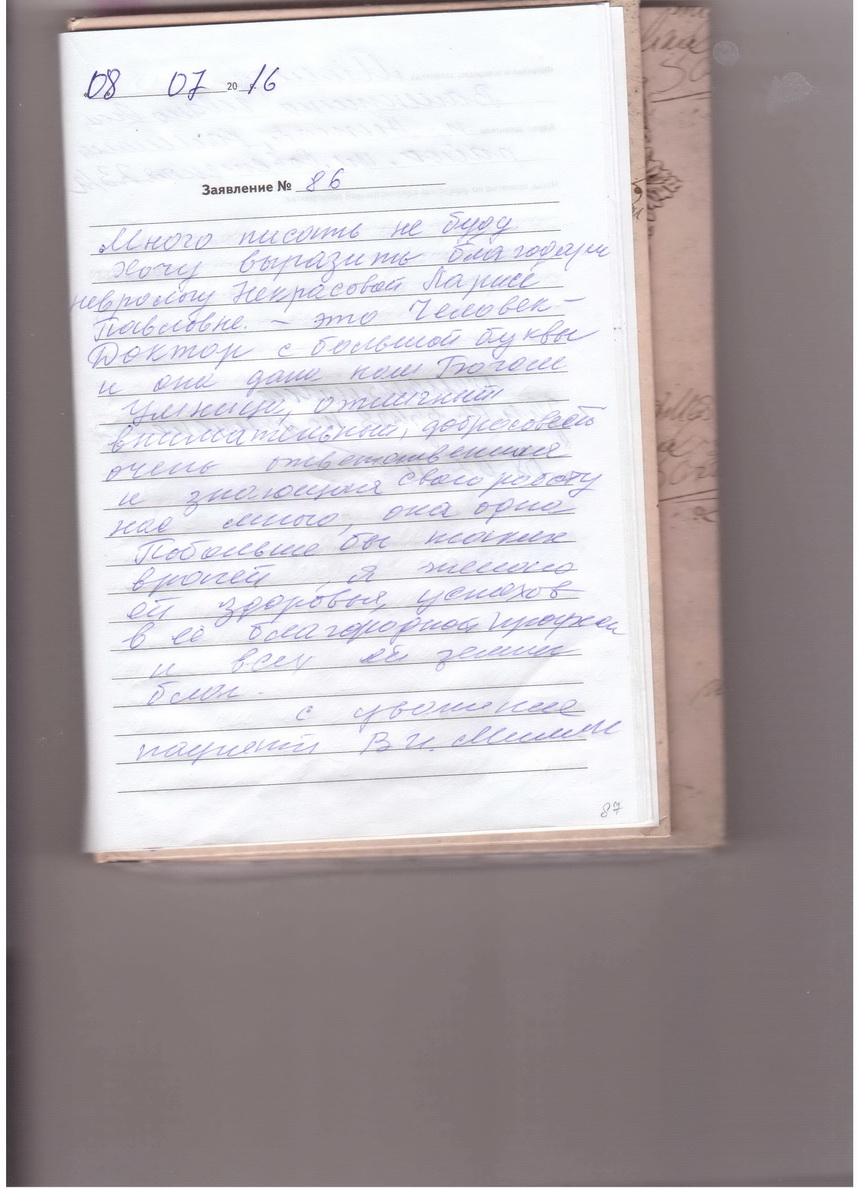 08 07 20 16
Заявление № 86
Много писать не буду
Хочу выразить благодарн
неврологу Некрасовой Ларисе
Павловне. – это Человек –
Доктор с большой буквы
и она дана нам Богом
Умница, отличный
внимательный, добросовестн
очень ответственная
и знающая свою работу
нас много, она одна
Побольше бы таких
врачей, я желаю
ей здоровья, успехов
в её благородной професси
и всех ей земных
благ.
с уважением
пациент В. И.
87